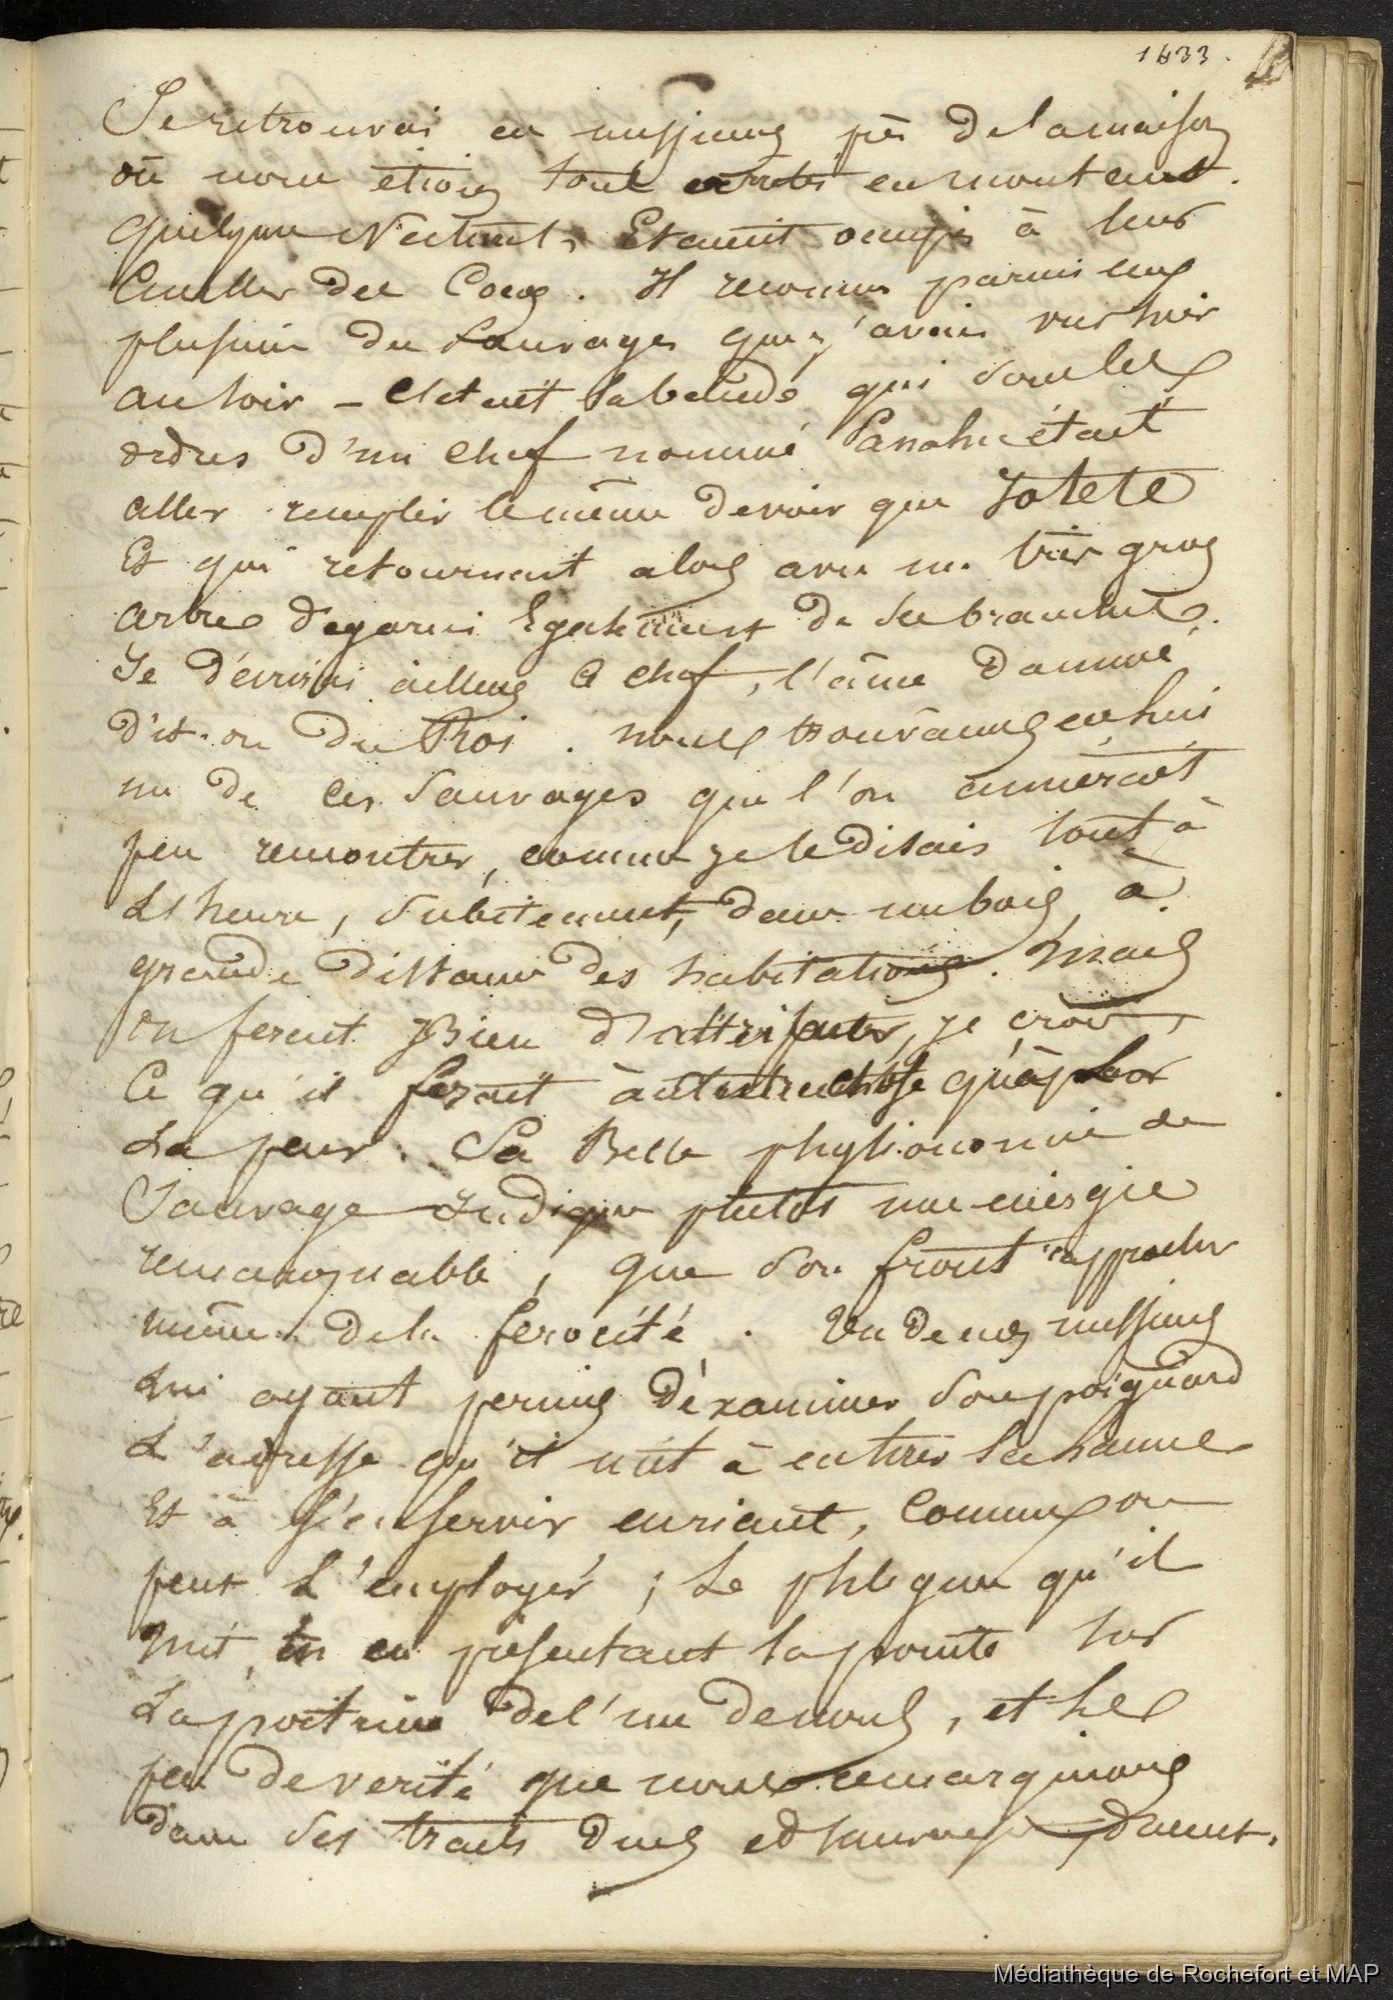 1633.
Je retrouvai ces messieurs près de la maison
où nous étions tous arrêtés en montant.
Quelques Naturels Etaient occupés à leur
Cueiller des Cocos. Je reconnus parmi eux
plusieurs des Sauvages que j'avais vus hier
au soir — C'etait la bande qui sous les
ordres d'un Chef nommé était
aller remplir le même devoir que Totete
Et qui retournait alors avec un très gros
arbre dégarni Egalement de ses branches.
Je décrirai ailleurs ce chef, l'âme damnée
dit-on du Roi. nous trouvâmes en lui
un de ces Sauvages que l'on aimerait
peu rencontrer, comme je le disais tout à
L'heure, subitement, dans un bois, à
grande distance des habitations. Mais
on ferait Bien d'attribuer, je crois,
Ce qu'il ferait à autre chose qu'à
La peur. Sa Belle physionomie de
Sauvage Indique plutôt une energie
remarquable, que son front rapproche
même de la ferocité. Un de ces messieurs
Lui ayant permis d'éxaminer son poignard
L'adresse qu'il mit à en tirer la lame
Et à s'en servir en riant, Comme on
peut L'employer ; Le phlegme qu'il
mit, en en présentant la pointe sur
La poitrine de l'un de nous, et le
peu de verité que nous remarquions
dans ses traits durs et